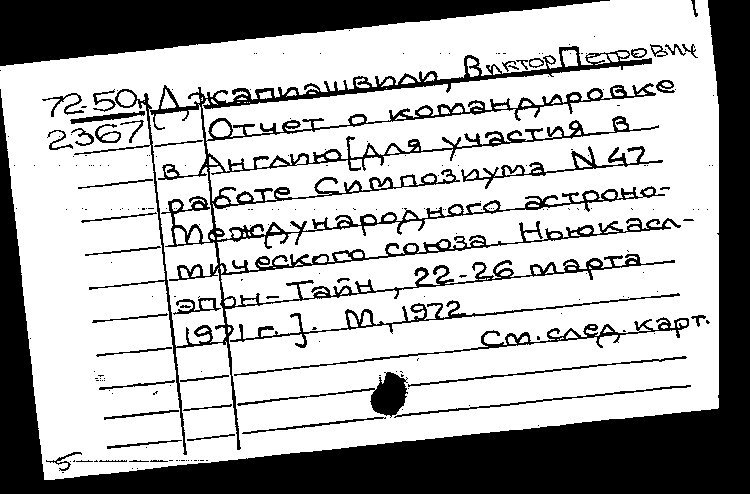 72-50н Джапиашвили, Виктор Петрович
2367 Отчет о командировке
в Англию [для участия в
работе Симпозиума N 47
Международного астроно-
мического союза. Ньюкасл-
апон-Тайн, 22-26 марта
1971 г.]. М., 1972.
См. след. карт.
5